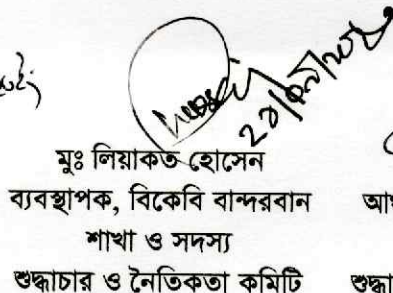 মুঃ লিয়াকত হোসেন
ব্যবস্থাপক, বিকেবি বান্দরবান
শাখা ও সদস্য
শুদ্ধাচার ও নৈতিকতা কমিটি শুদ্ধা